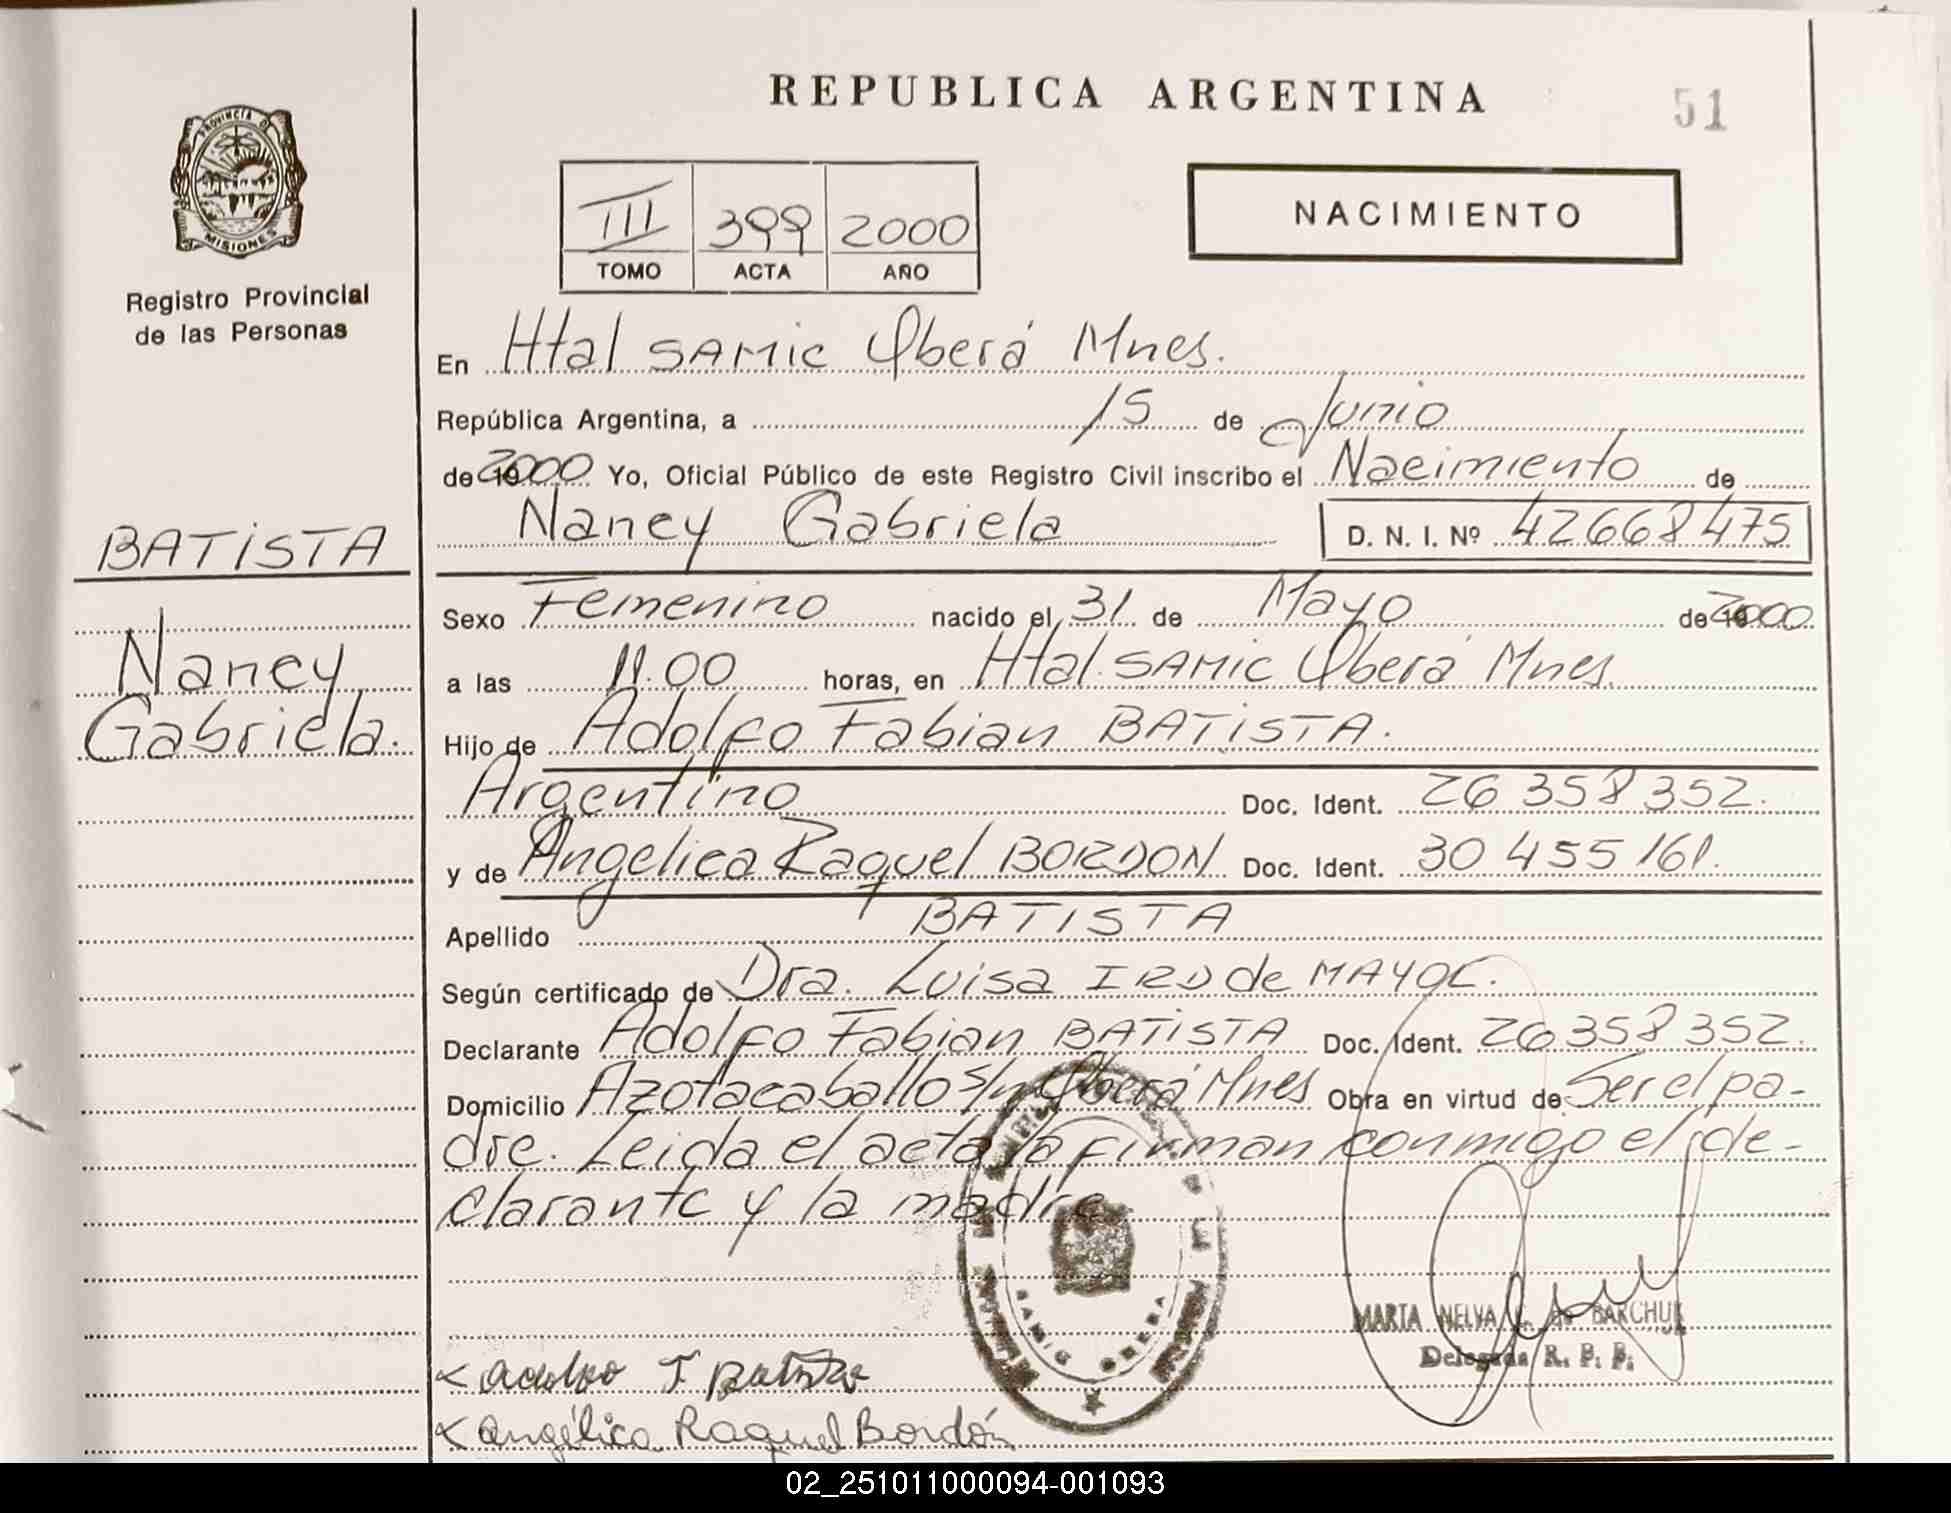 REPUBLICA ARGENTINA
51
PROVINCIA DE
MISIONES
Registro Provincial
de las Personas
III 399 2000
TOMO ACTA AÑO
NACIMIENTO
En Htal SAMIC Oberá Mnes.
República Argentina, a 15 de Junio
de 2000 Yo, Oficial Público de este Registro Civil inscribo el Nacimiento de
Nancy Gabriela D. N. I. Nº 42668475
BATISTA
Nancy
Gabriela.
Sexo Femenino nacido el 31 de Mayo de 2000
a las 11.00 horas, en Htal. SAMIC Oberá Mnes.
Hijo de Adolfo Fabian BATISTA.
Argentino Doc. Ident. 26 358 352.
y de Angelica Raquel BORDON Doc. Ident. 30 455 161.
Apellido BATISTA
Según certificado de Dra. Luisa de
Declarante Adolfo Fabian BATISTA Doc. Ident. 26 358 352.
Domicilio Azotacaballo s/n Oberá Mnes Obra en virtud de Ser el pa-
dre. Leida el acta la firman conmigo el de-
clarante y la madre
SAMIC OBERA
MARTA NELVA de BARCHUK
Delegada R. P. P.
Adolfo F Batista
Angélica Raquel Bordón
02_251011000094-001093